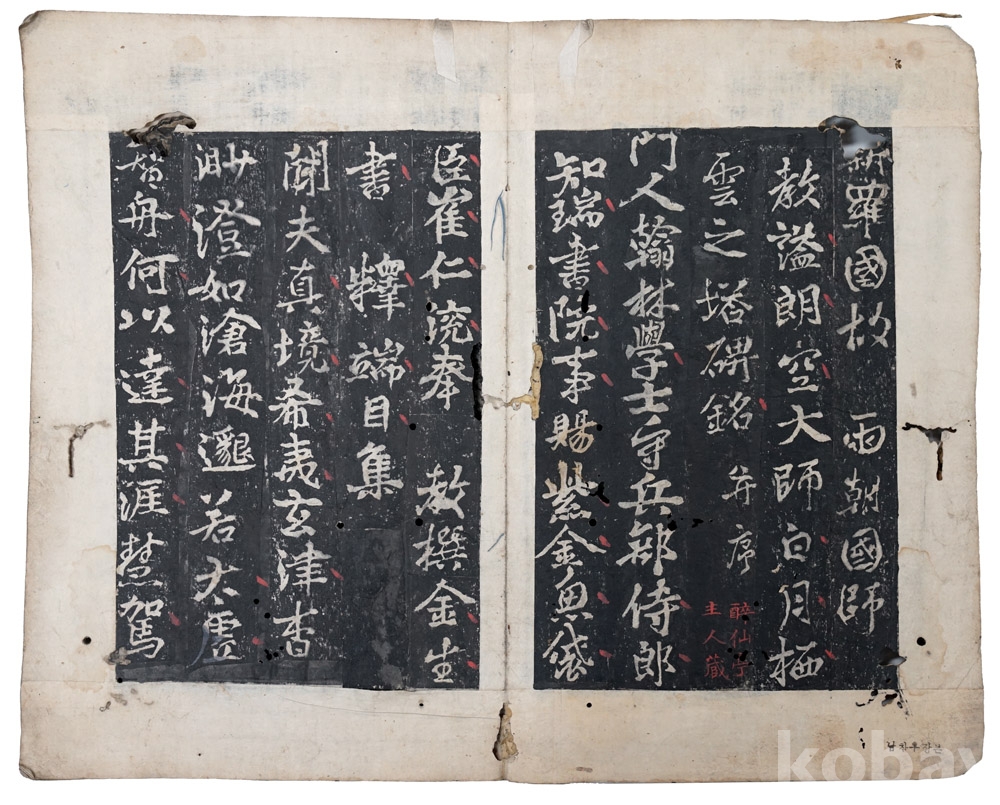 新羅國故 兩朝國師
教諡朗空大師白月栖
雲之塔碑銘 并序
醉仙亭
主人藏
門人翰林學士守兵部侍郎
知瑞書院事賜紫金魚袋
臣崔仁渷奉 教撰金生
書 釋端目集
聞夫真境希夷玄津杳
渺澄如滄海邈若太虛
智舟何以達其涯慧駕
kobay